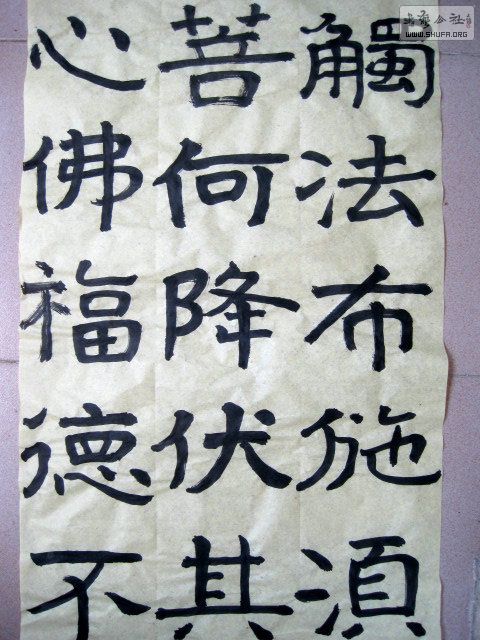 觸法布施湏
菩何降伏其
心佛福德不
书法公社
WWW.SHUFA.ORG